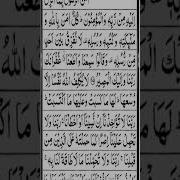 اٰمَنَ الرَّسُوْلُ بِمَاۤ اُنْزِلَ
اِلَيْهِ مِنْ رَّبِّهٖ وَالْمُؤْمِنُوْنَ ؕ كُلٌّ اٰمَنَ بِاللّٰهِ وَ
مَلٰٓئِكَتِهٖ وَكُتُبِهٖ وَرُسُلِهٖ ۟ لَا نُفَرِّقُ بَيْنَ اَحَدٍ
مِّنْ رُّسُلِهٖ ۟ وَقَالُوْا سَمِعْنَا وَاَطَعْنَا غُفْرَانَكَ
رَبَّنَا وَاِلَيْكَ الْمَصِيْرُ ۝ لَا يُكَلِّفُ اللّٰهُ نَفْسًا اِلَّا
وُسْعَهَا ؕ لَهَا مَا كَسَبَتْ وَعَلَيْهَا مَا اكْتَسَبَتْ ؕ
رَبَّنَا لَا تُؤَاخِذْنَاۤ اِنْ نَّسِيْنَاۤ اَوْ اَخْطَاْنَا ۚ رَبَّنَا وَلَا
تَحْمِلْ عَلَيْنَاۤ اِصْرًا كَمَا حَمَلْتَهٗ عَلَى الَّذِيْنَ مِنْ
قَبْلِنَا ۚ رَبَّنَا وَلَا تُحَمِّلْنَا مَا لَا طَاقَةَ لَنَا بِهٖ